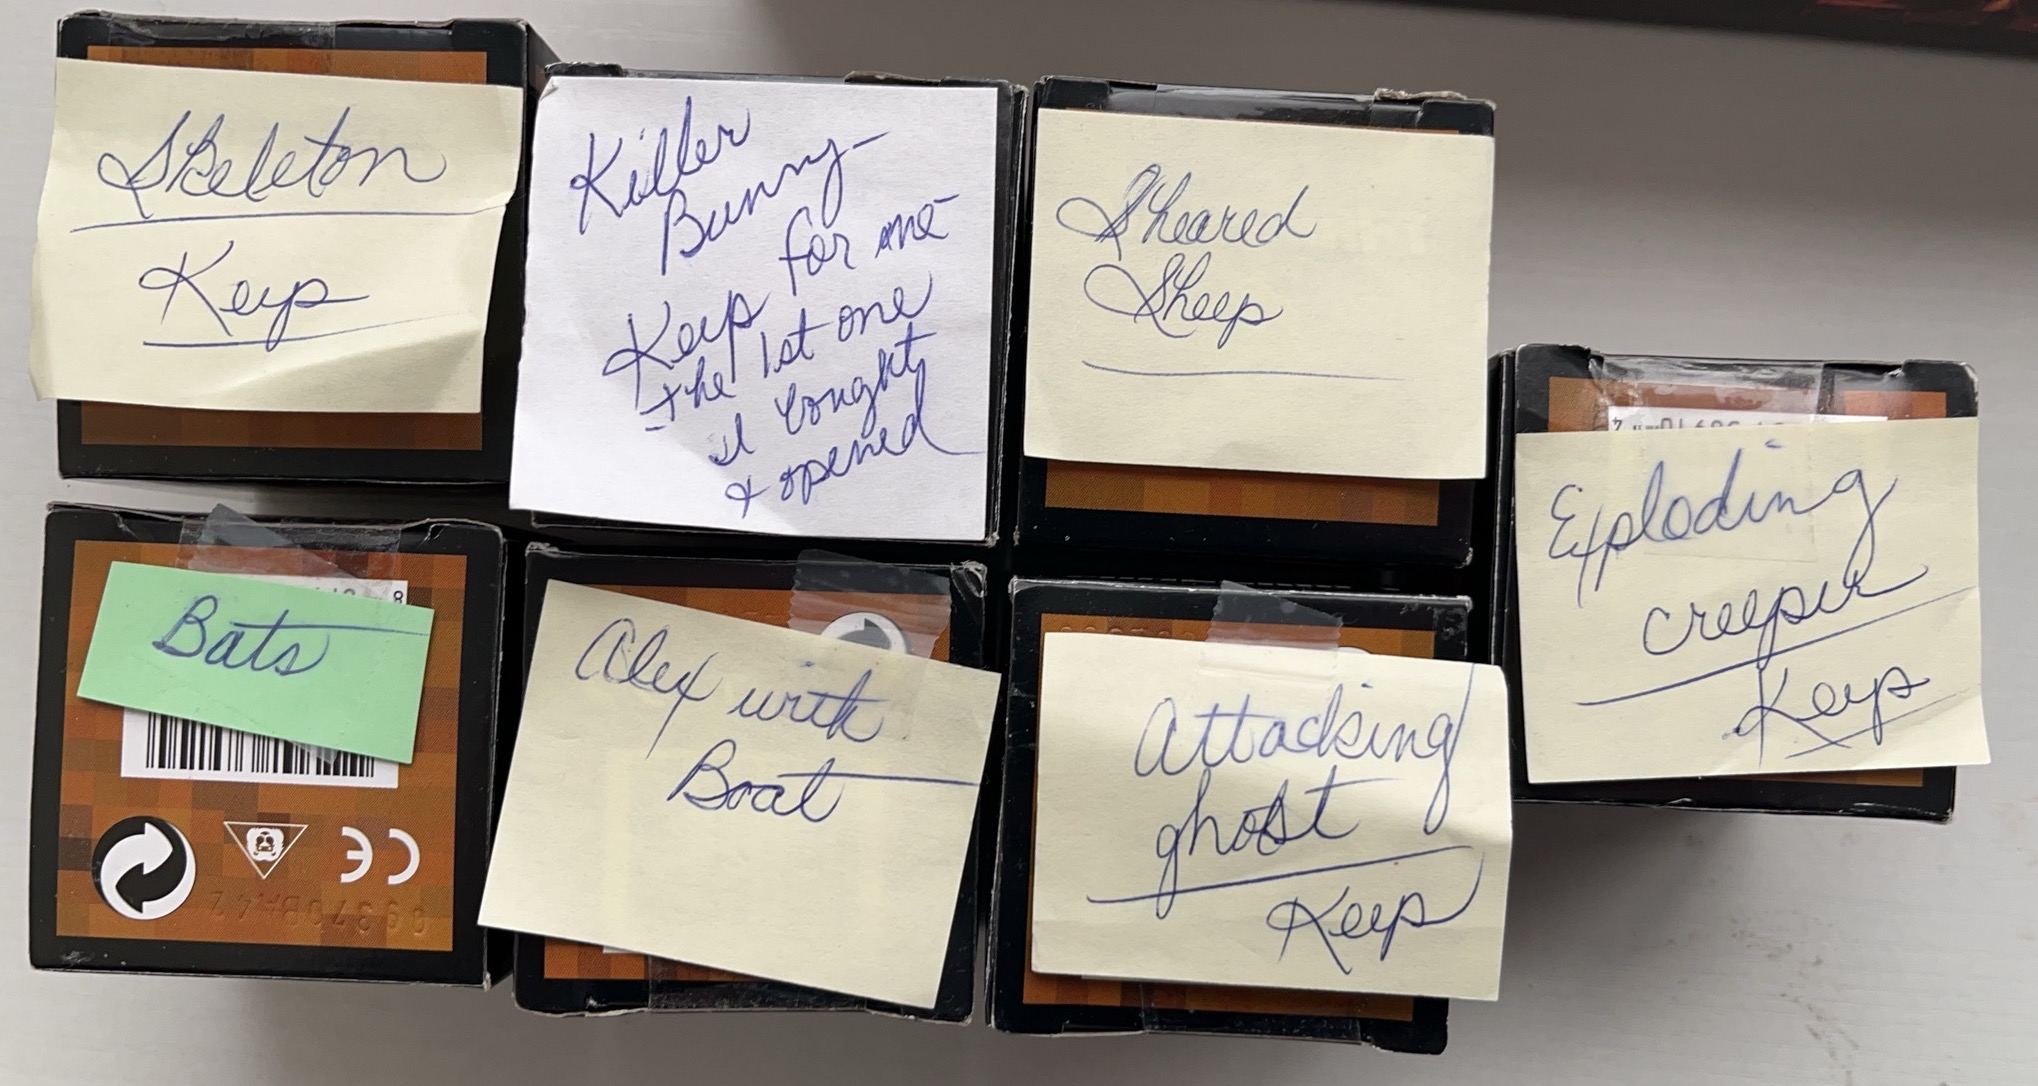 Skeleton
Keep
Killer
Bunny-
Keep for me-
the 1st one
I bought
& opened
Sheared
Sheep
Exploding
creeper
Keep
Bats
Alex with
Boat
Attacking
ghost
Keep
CE